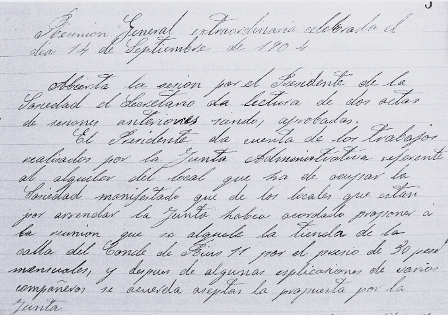 Reunión General extraordinaria celebrada el
dia 14 de Septiembre de 1904
Abierta la sesion por el Presidente de la
Sociedad el Secretario da lectura de dos actas
de sesiones anteriores siendo, aprobadas.
El Presidente da cuenta de los trabajos
realizados por la Junta Administrativa referente
al alquiler del local que ha de ocupar la
Sociedad manifestado que de los locales que estan
por arrendar la Junta habia acordado proponer á
la reunion que se alquile la tienda de la
calla del Conde de Rius 11 por el precio de 30 pese
mensuales, y despues de algunas esplicaciones de varios
compañeros se acuerda aseptar la propuesta por la
Junta